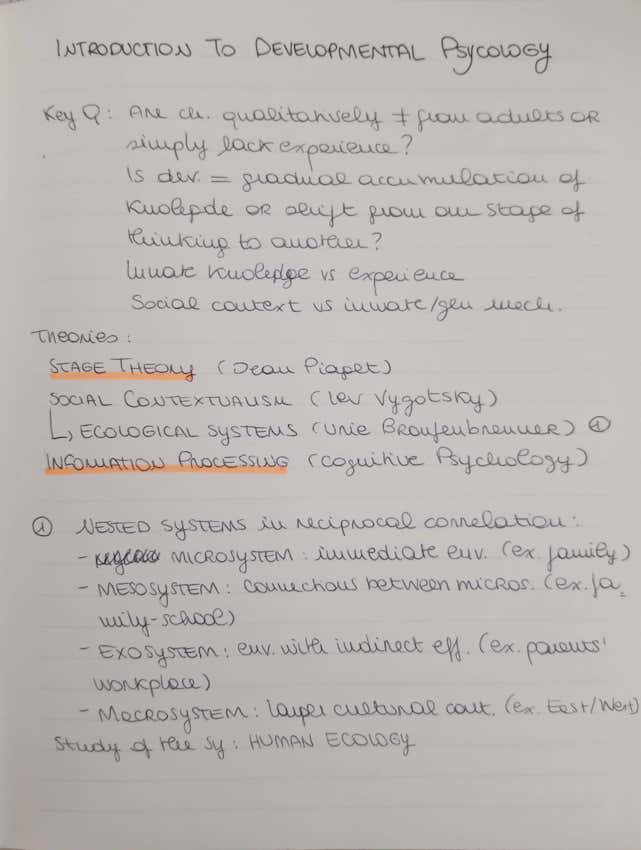 INTRODUCTION TO DEVELOPMENTAL PSYCOLOGY
Key Q: Are ch. qualitatively ≠ from adults OR
simply lack experience?
Is dev. = gradual accumulation of
knowledge OR shift from one stage of
thinking to another?
Innate knowledge vs experience
Social context vs innate/gen mech.
Theories:
STAGE THEORY (Jean Piaget)
SOCIAL CONTEXTUALISM (Lev Vygotsky)
↳ ECOLOGICAL SYSTEMS (Urie Bronfenbrenner) ①
INFORMATION PROCESSING (Cognitive Psychology)
① NESTED SYSTEMS in reciprocal correlation:
- MICROSYSTEM: immediate env. (ex. family)
- MESOSYSTEM: connections between micros. (ex. fa_
mily-school)
- EXOSYSTEM: env. with indirect eff. (ex. parents'
workplace)
- MACROSYSTEM: larger cultural cont. (ex. East/West)
Study of the sy: HUMAN ECOLOGY